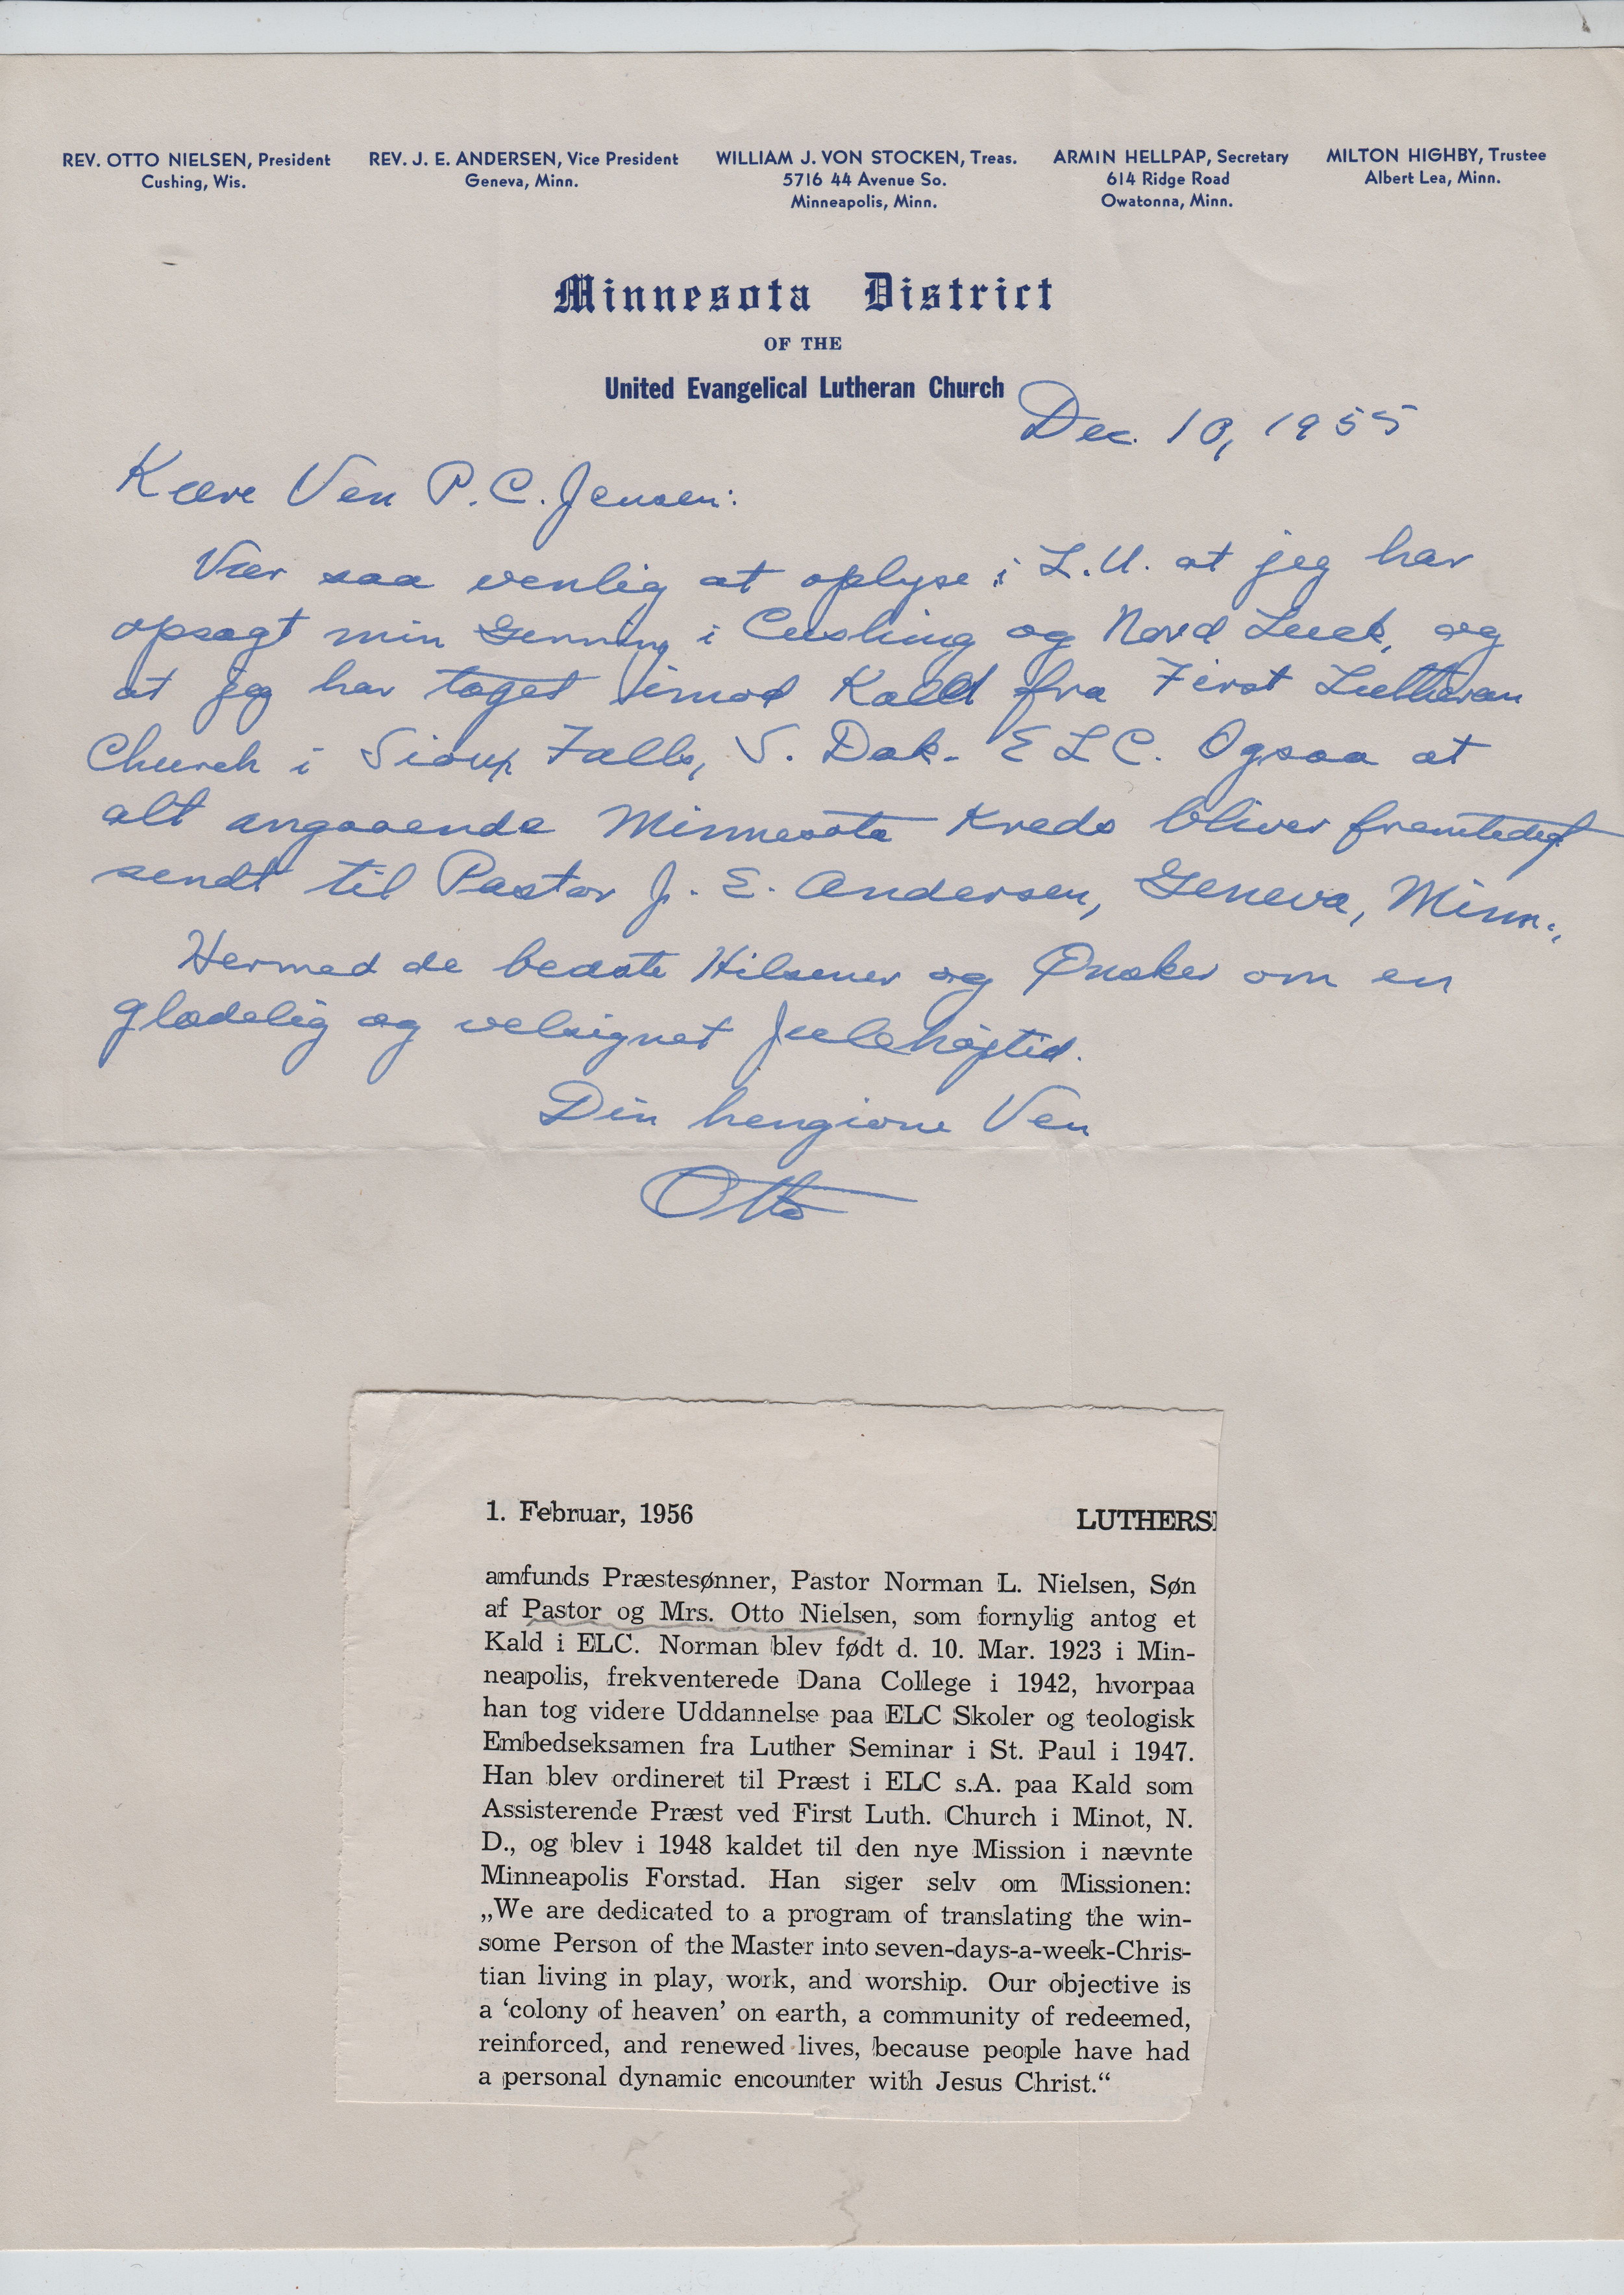 REV. OTTO NIELSEN, President
Cushing, Wis.
REV. J. E. ANDERSEN, Vice President
Geneva, Minn.
WILLIAM J. VON STOCKEN, Treas.
5716 44 Avenue So.
Minneapolis, Minn.
ARMIN HELLPAP, Secretary
614 Ridge Road
Owatonna, Minn.
MILTON HIGHBY, Trustee
Albert Lea, Minn.
Minnesota District
OF THE
United Evangelical Lutheran Church
Dec. 10, 1955
Kære Ven P. C. Jensen:
Vær saa venlig at oplyse i L.U. at jeg har
opsagt min Gerning i Cushing og Nord Luck, og
at jeg har taget imod Kald fra First Lutheran
Church i Sioux Falls, S. Dak. ELC. Ogsaa at
alt angaaende Minnesota Kreds bliver fremtidigt
sendt til Pastor J. E. Andersen, Geneva, Minn.,
Hermed de bedste Hilsener og Ønsker om en
glædelig og velsignet Julehøjtid.
Din hengivne Ven
Otto
1. Februar, 1956 LUTHERS
amfunds Præstesønner, Pastor Norman L. Nielsen, Søn
af Pastor og Mrs. Otto Nielsen, som fornylig antog et
Kald i ELC. Norman blev født d. 10. Mar. 1923 i Min-
neapolis, frekventerede Dana College i 1942, hvorpaa
han tog videre Uddannelse paa ELC Skoler og teologisk
Embedseksamen fra Luther Seminar i St. Paul i 1947.
Han blev ordineret til Præst i ELC s.A. paa Kald som
Assisterende Præst ved First Luth. Church i Minot, N.
D., og blev i 1948 kaldet til den nye Mission i nævnte
Minneapolis Forstad. Han siger selv om Missionen:
„We are dedicated to a program of translating the win-
some Person of the Master into seven-days-a-week-Chris-
tian living in play, work, and worship. Our objective is
a ‘colony of heaven’ on earth, a community of redeemed,
reinforced, and renewed lives, because people have had
a personal dynamic encounter with Jesus Christ.“